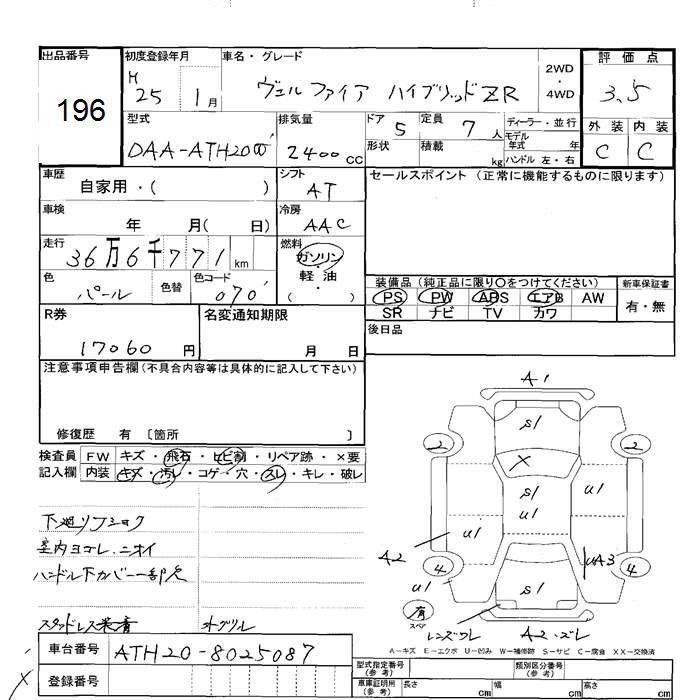 出品番号 初度登録年月 車名・グレード 評価点
196
H 25 1月 ヴェルファイア ハイブリッドZR 2WD・4WD 3.5
型式 排気量 ドア 定員 ディーラー・並行 外装 内装
DAA-ATH20W 2400cc 5 7人 モデル年式 年 C C
形状 積載 kg ハンドル 左・右
車歴 シフト セールスポイント (正常に機能するものに限ります)
自家用・( ) AT
車検 冷房
年 月( 日) AAC
走行 燃料
36万6千771km ガソリン・軽油・( )
色 色替 色コード
パール 070
装備品 (純正品に限り○をつけてください) 新車保証書
PS PW ABS エアB AW 有・無
SR ナビ TV カワ
R券 名変通知期限 後日品
17060円 月 日
注意事項申告欄 (不具合内容等は具体的に記入して下さい)
修復歴 有 〔箇所 〕
検査員 FW キズ・飛石・ヒビ割・リペア跡・×要
記入欄 内装 キズ・汚レ・コゲ・穴・スレ・キレ・破レ
下廻リフショク
室内ヨゴレ.ニオイ
ハンドル下カバー一部欠
スタッドレス装着 オグリル
A1
S1
2 2
X
S1
U1
U1
U1
A2
UA3
4 4
U1
S1
有
スペア
レンズワレ A2.ズレ
A-キズ E-エクボ U-凹み W-補修跡 S-サビ C-腐食 XX-交換済
車台番号 ATH20-8025087
登録番号
型式指定番号(参考) 類別区分番号(参考)
車庫証明用(参考) 長さ cm 幅 cm 高さ cm